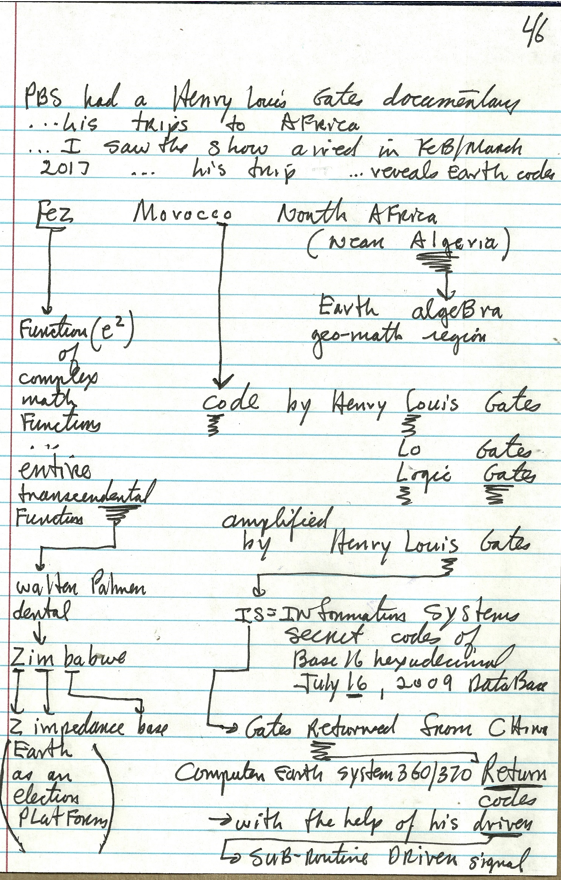 4/6
PBS had a Henry Louis Gates documentary
...his trips to AFrica
... I saw the show aired in FeB/March
2017 ... his trip ...reveals Earth codes
Fez Morocco North AFrica
(near Algeria)
Earth algeBra
geo-math region
Function (e²)
of
complex
math
Functions
...
entire
transcendental
Function
code by Henry Louis Gates
Lo Gates
Logic Gates
amplified
by Henry Louis Gates
walter Palmer
dental
Zimbabwe
Z impedance base
(Earth
as an
election
PLatForm)
IS=INFormation Systems
secret codes of
Base 16 hexadecimal
July 16, 2009 DataBase
Gates Returned from CHina
Computer Earth system 360/370 Return
codes
→with the help of his driver
SuB-Routine DRiven signal